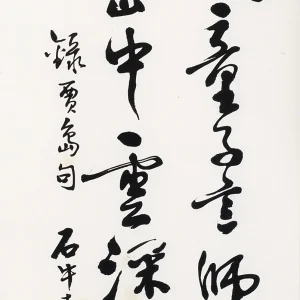 童子言師
山中雲深
錄賈島句 石牛